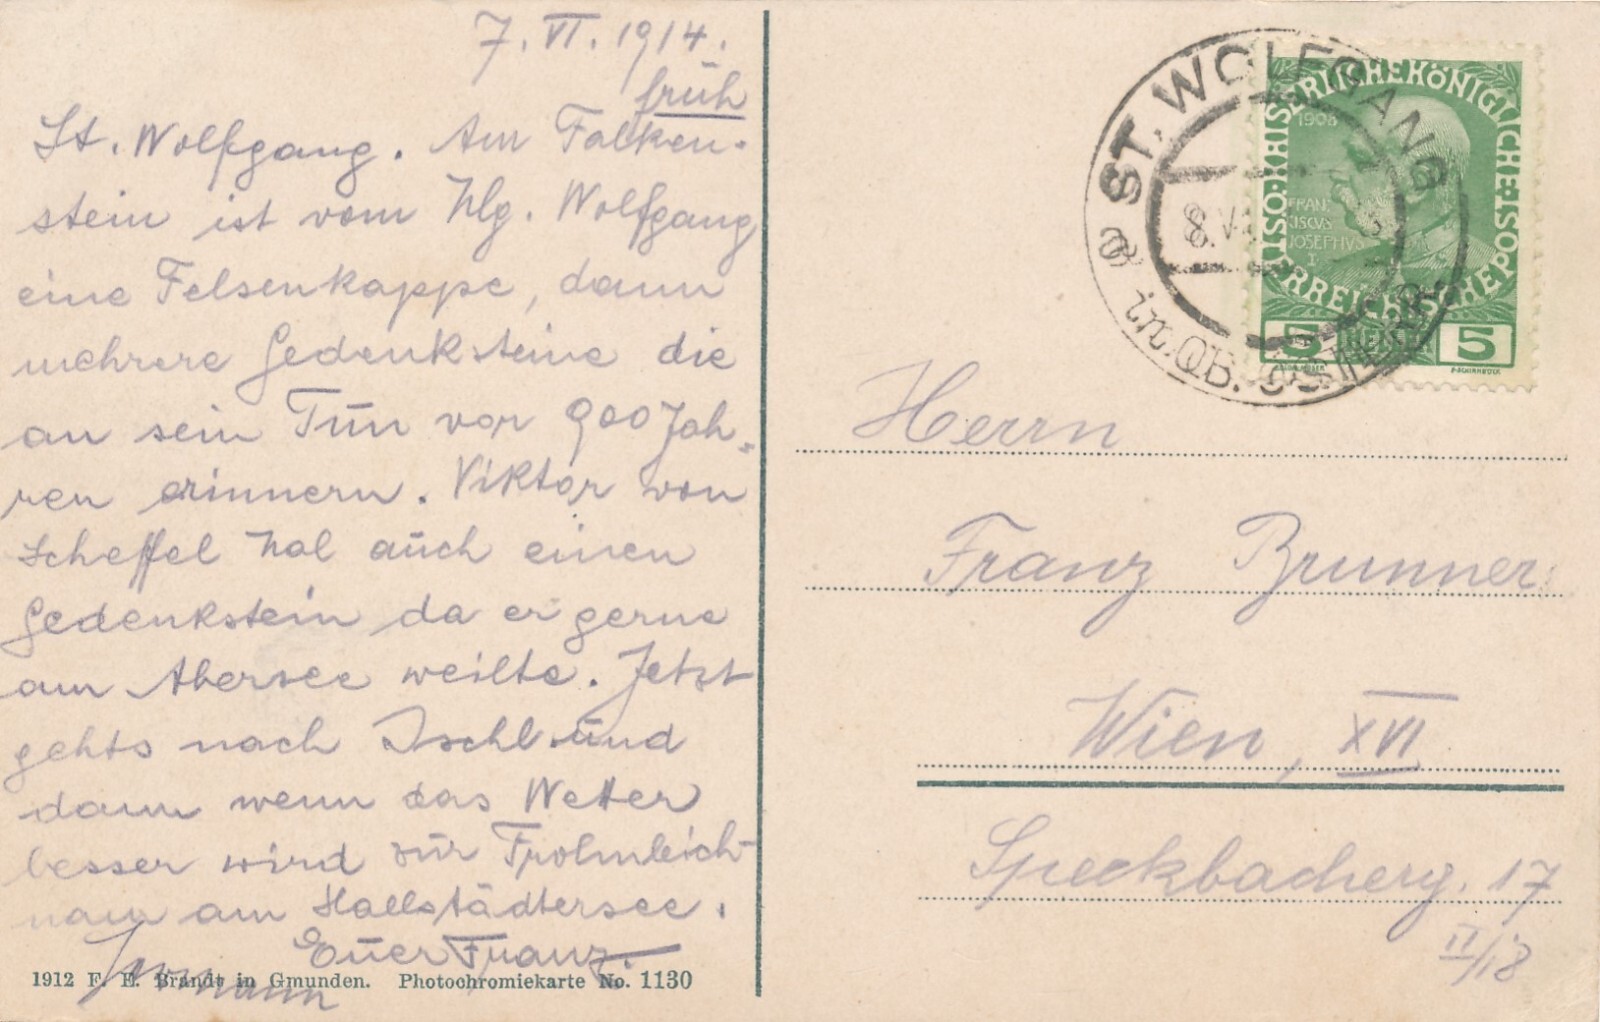 7. VI. 1914.
früh
St. Wolfgang. Am Falken-
stein ist vom Hlg. Wolfgang
eine Felsenkappe, dann
mehrere Gedenksteine die
an sein Tun vor 900 Jah-
ren erinnern. Viktor von
Scheffel hat auch einen
Gedenkstein da er gerne
am Abersee weilte. Jetzt
gehts nach Ischl und
dann wenn das Wetter
besser wird zur Frohnleich-
nam am Hallstädtersee.
Euer Franz.
1912 F. E. Brandt in Gmunden. Photochromiekarte No. 1130
ST. WOLFGANG
8. VI
in OB. ÖSTERR.
KAISERLICHE KÖNIGLICHE ÖSTERREICHISCHE POST
1908
FRAN
CISCVS
JOSEPHVS
I
5 HELLER 5
Herrn
Franz Brunner
Wien, XVI
Speckbacherg. 17
II/18